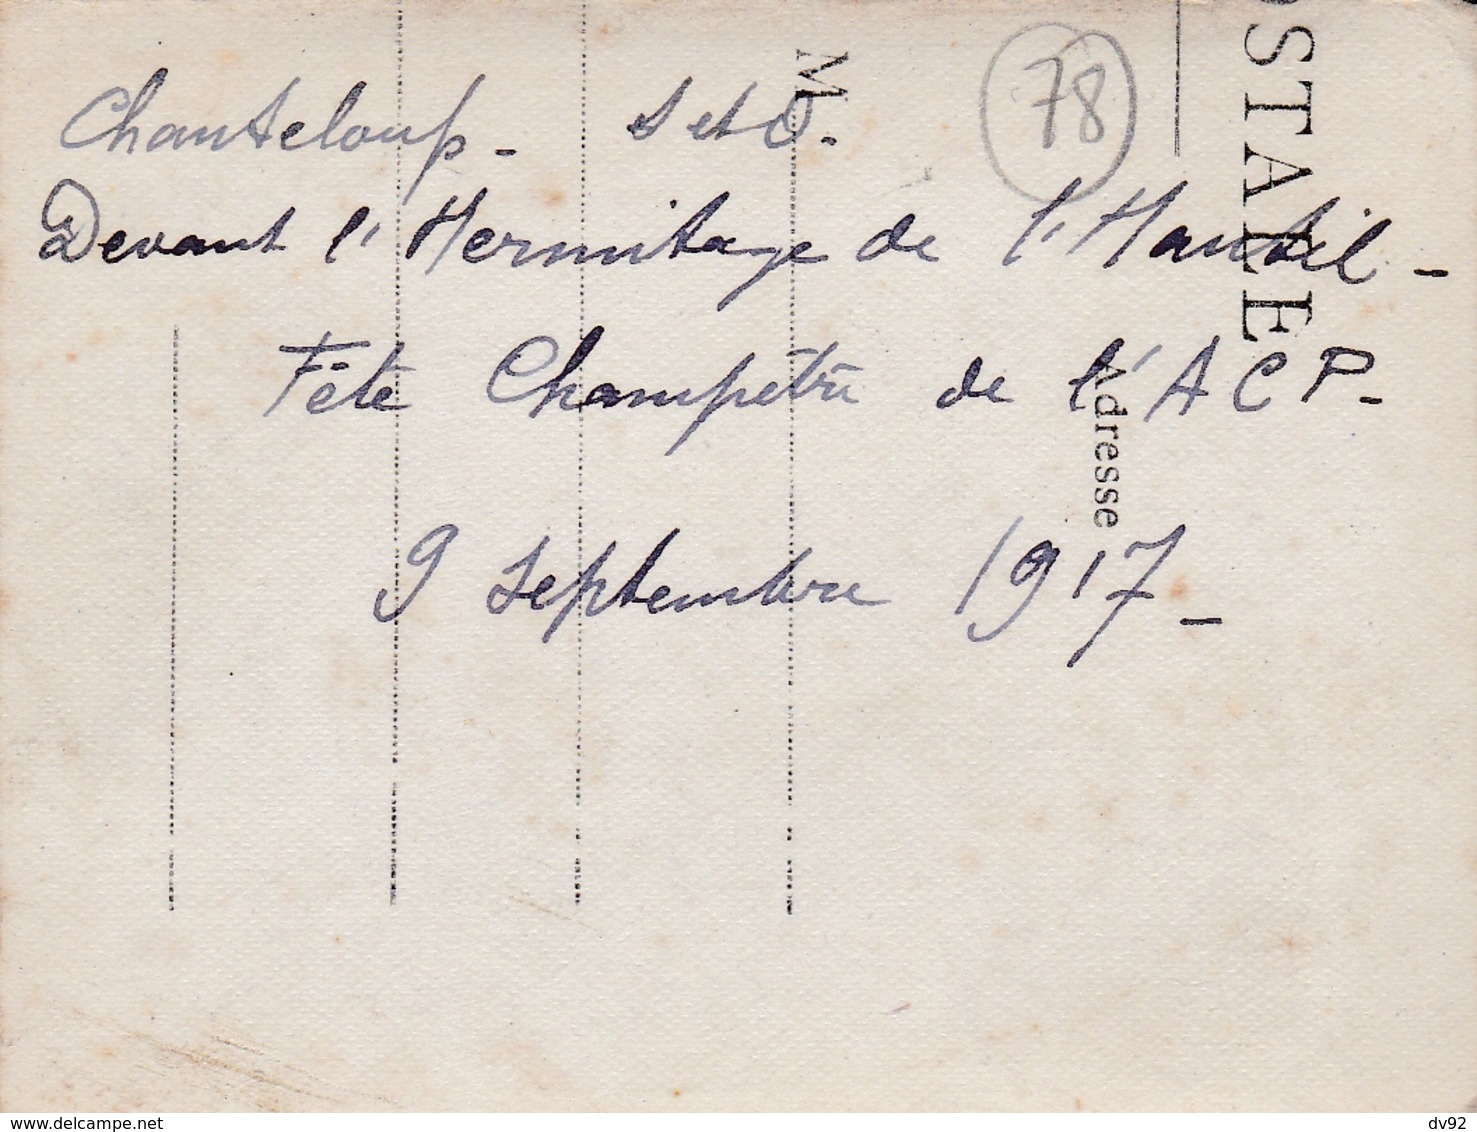 Chanteloup - S et O.
78
Devant l'Hermitage de l'Hautil -
Fête Champêtre de l'ACP -
9 septembre 1917 -
OSTALE
M.
Adresse
dv92